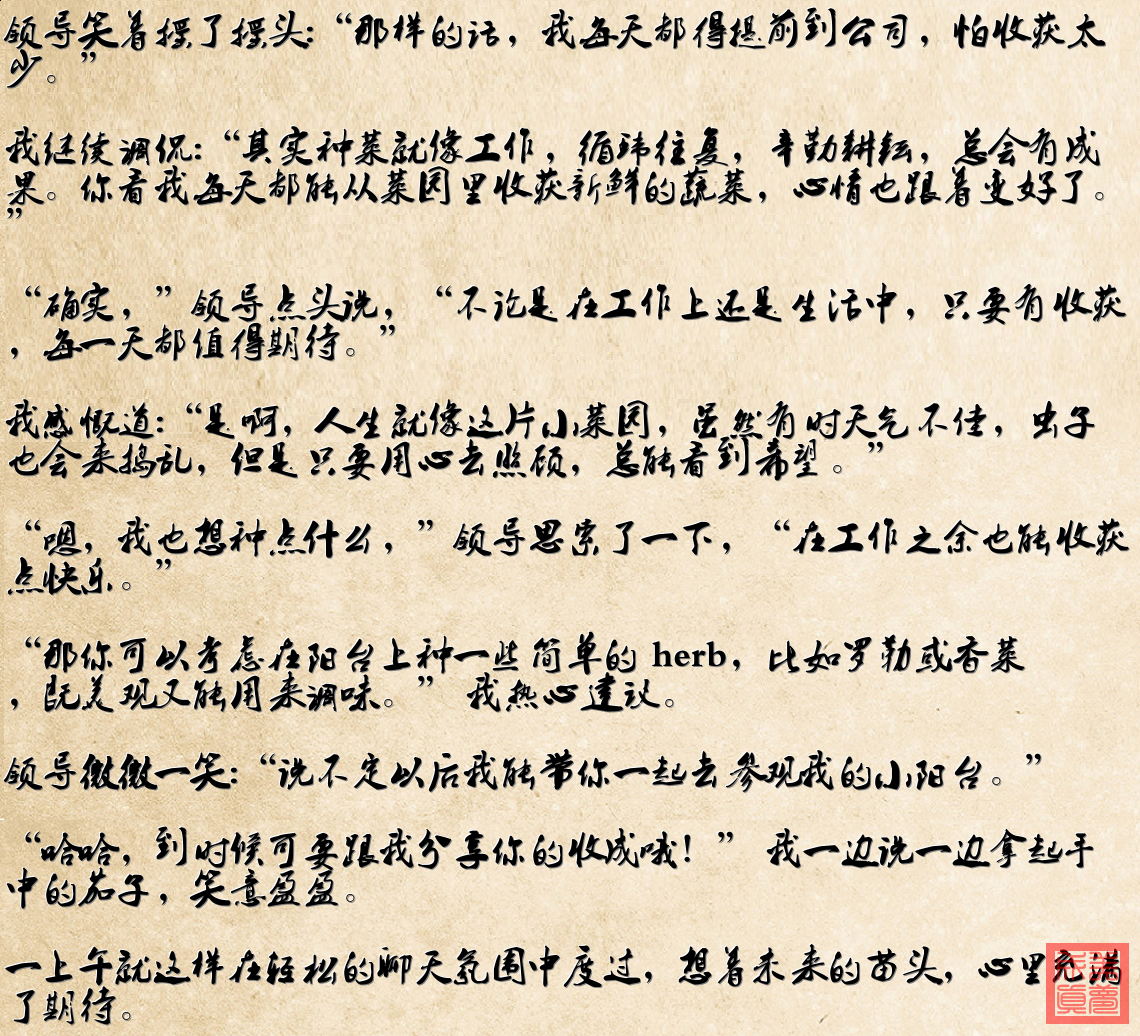 领导笑着摆了摆头：“那样的话，我每天都得提前到公司，怕收获太
少。”
我继续调侃：“其实种菜就像工作，循环往复，辛勤耕耘，总会有成
果。你看我每天都能从菜园里收获新鲜的蔬菜，心情也跟着变好了。
”
“确实，”领导点头说，“不论是在工作上还是生活中，只要有收获
，每一天都值得期待。”
我感慨道：“是啊，人生就像这片小菜园，虽然有时天气不佳，虫子
也会来捣乱，但是只要用心去照顾，总能看到希望。”
“嗯，我也想种点什么，”领导思索了一下，“在工作之余也能收获
点快乐。”
“那你可以考虑在阳台上种一些简单的 herb，比如罗勒或香菜
，既美观又能用来调味。” 我热心建议。
领导微微一笑：“说不定以后我能带你一起去参观我的小阳台。”
“哈哈，到时候可要跟我分享你的收成哦！” 我一边说一边拿起手
中的茄子，笑意盈盈。
一上午就这样在轻松的聊天氛围中度过，想着未来的苗头，心里充满
了期待。